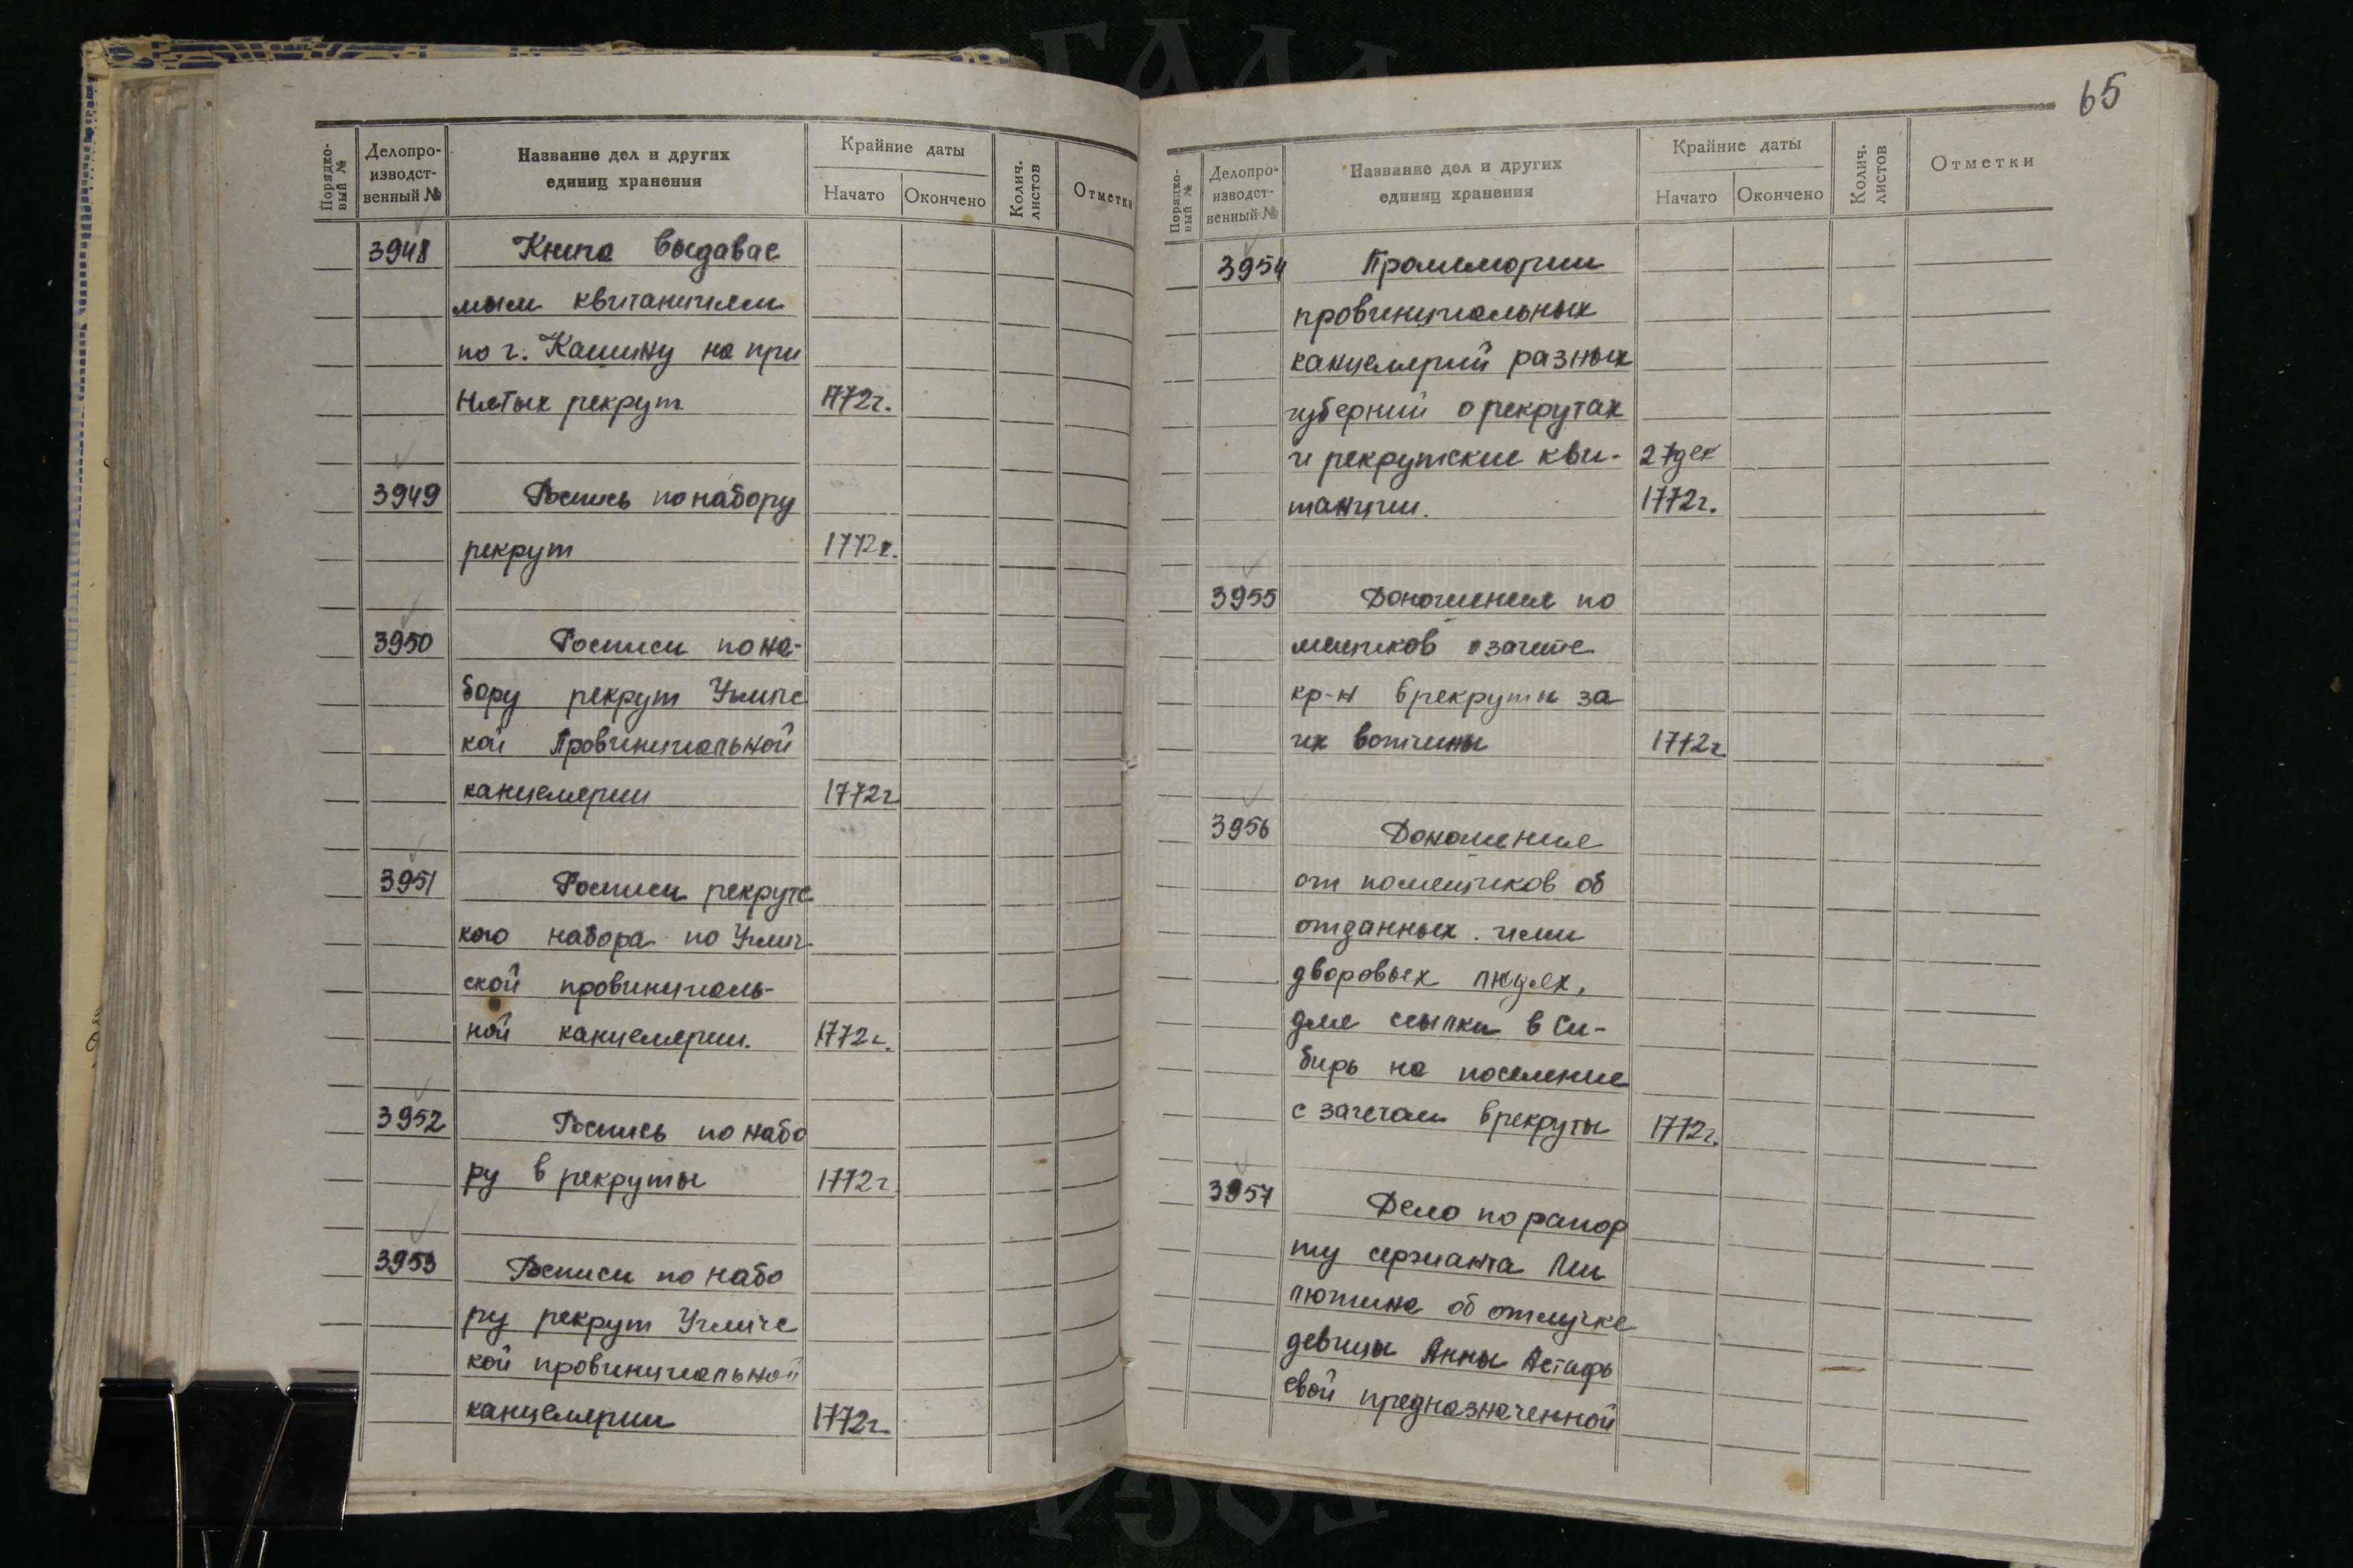 65
Порядко-
вый №
Делопро-
изводст-
венный №
Название дел и других
единиц хранения
Крайние даты
Начато
Окончено
Колич.
листов
Отметки
3948
Книга выдавае
мым квитанциям
по г. Кашину на при
нятых рекрут
1772г.
3949
Роспись по набору
рекрут
1772г.
3950
Росписи по на-
бору рекрут Угличс
кой Провинциальной
канцелярии
1772г
3951
Росписи рекрутс
кого набора по Углич
ской провинциаль-
ной канцелярии.
1772г.
3952
Роспись по набо
ру в рекруты
1772г.
3953
Росписи по набо
ру рекрут Угличс
кой провинциальной
канцелярии
1772г.
Порядко-
вый №
Делопро-
изводст-
венный №
Название дел и других
единиц хранения
Крайние даты
Начато
Окончено
Колич.
листов
Отметки
3954
Промемории
провинциальных
канцелярий разных
губерний о рекрутах
и рекрутские кви-
27дек
танции.
1772г.
3955
Доношения по
мещиков о зачете
кр-н в рекруты за
их вотчины
1772г
3956
Доношение
от помещиков об
отданных ими
дворовых людях,
для ссылки в Си-
бирь на поселение
с зачетом в рекруты
1772г.
3957
Дело по рапор
ту сержанта Ми
лютина об отлучке
девицы Анны Астафь
евой предназначенной